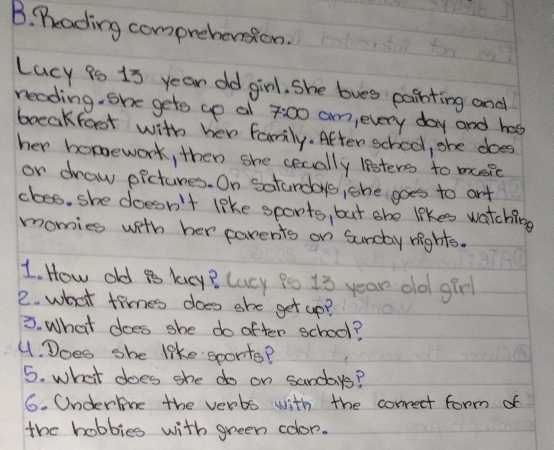 B. Reading comprehension.
Lucy is 13 year old girl. She loves painting and
reading. She gets up at 7:00 am, every day and has
breakfast with her family. After school, she does
her homework, then she usually listens to music
or draw pictures. On Saturdays, she goes to art
class. she doesn't like sports, but she likes watching
momies with her parents on Sunday nights.
1. How old is lucy? Lucy is 13 year old girl
2. what times does she get up?
3. What does she do after school?
4. Does she like sports?
5. what does she do on sundays?
6. Underline the verbs with the correct form of
the hobbies with green color.